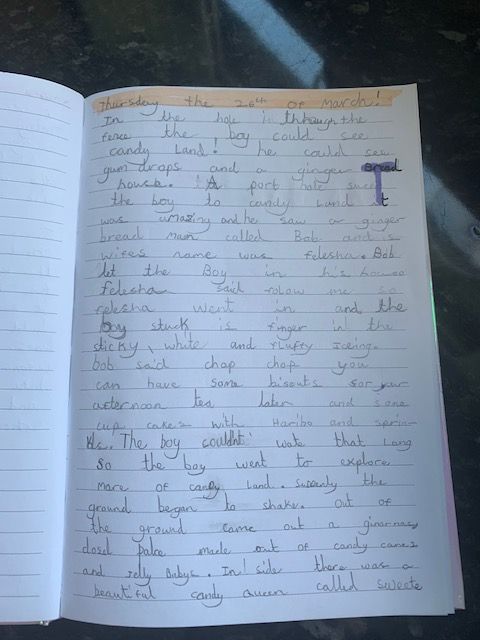 Thursday the 26th of March!
In the hole in through the
fence the boy could see
candy Land! he could see
gum drops and a ginger Bread
house. A port hole suced
the boy to candy Land It
was amazing and he saw a ginger
bread man called Bob and is
wifes name was felesha. Bob
let the Boy in his house
felesha said folow me so
felesha went in and the
boy stuck is finger in the
sticky, white and fluffy Iceing.
bob said chap chop you
can have some biscuts for your
afternoon tea later and some
cup cakes with Haribo and sprin
kls. The boy couldnt wate that Lang
so the boy went to explore
more of candy Land. Suddenly the
ground began to shake. out of
the ground came out a
palce made out of candy canes
and Jelly Babys. In side there was a
beautiful candy Queen called sweete